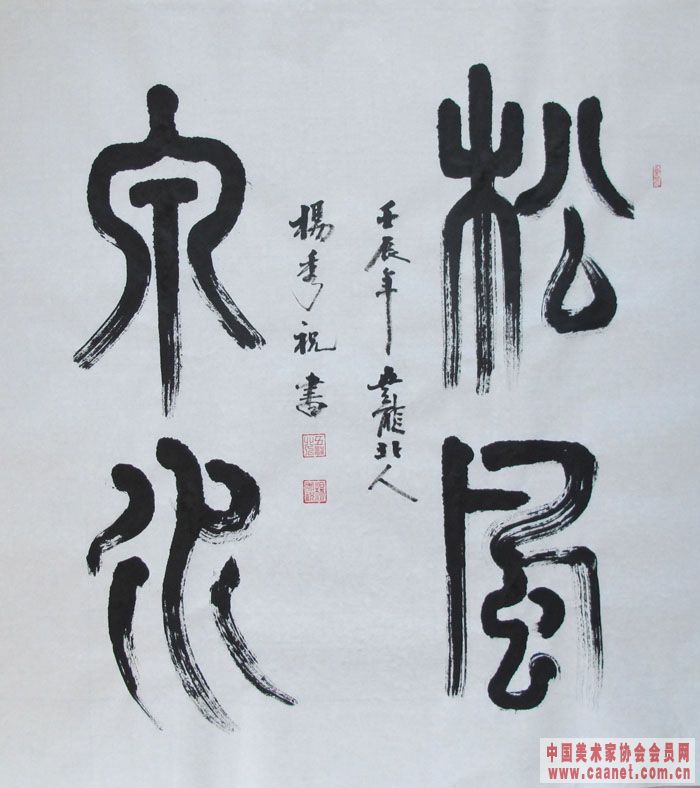 松風
泉水
壬辰年五龍北人
楊秀祝書
中国美术家协会会员网
www.caanet.com.cn